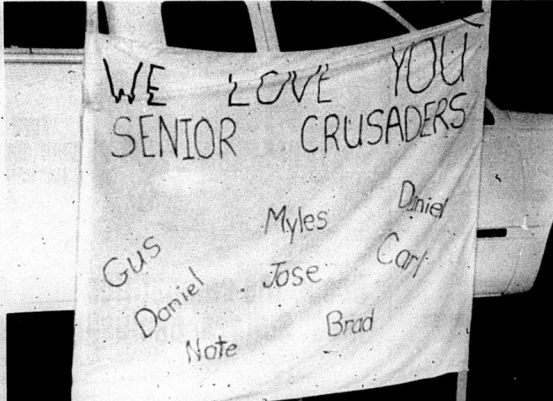 WE LOVE YOU
SENIOR CRUSADERS
Daniel
Myles
Gus
Jose
Carl
Daniel
Nate
Brad